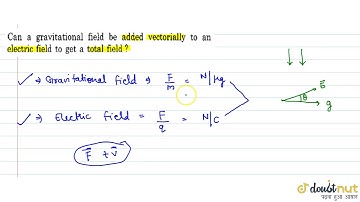 Can a gravitational field be added vectorially to an
electric field to get a total field?
✓→ Gravitational field → F/m = N/kg
✓→ Electric field = F/q = N/C
F⃗ + V⃗
E⃗
θ
g
doubtnut
पढ़ना हुआ आसान